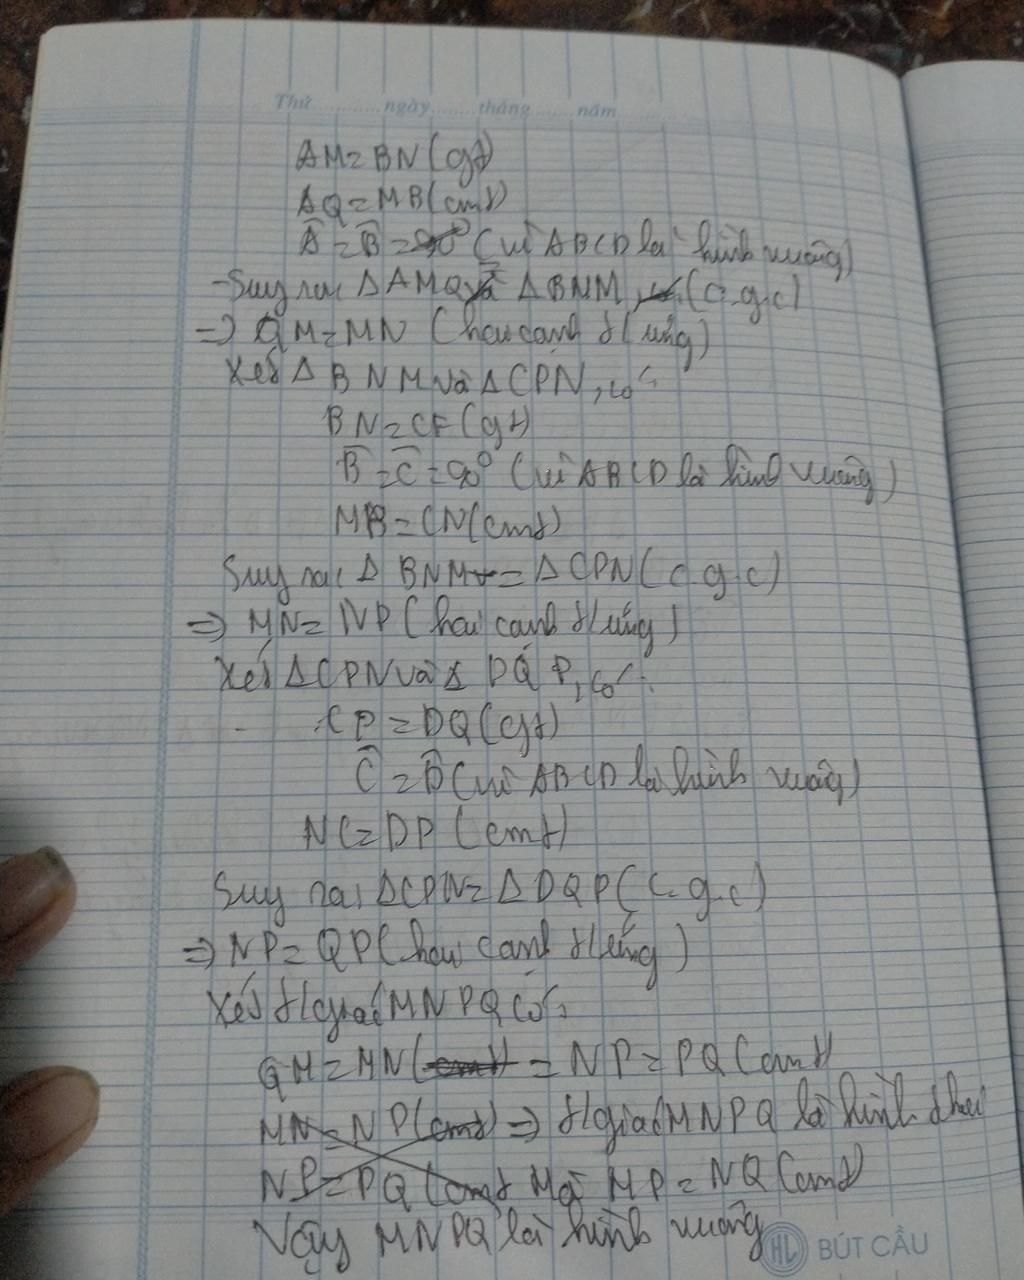 Thứ ......... ngày ....... tháng ....... năm .......
AM = BN (gt)
AQ = MB (cmt)
Â = B̂ = 90° (vì ABCD là hình vuông)
Suy ra: ΔAMQ = ΔBNM (c.g.c)
=> QM = MN (hai cạnh t/ứng)
Xét ΔBNM và ΔCPN, có:
BN = CF (gt)
B̂ = Ĉ = 90° (vì ABCD là hình vuông)
MB = CN (cmt)
Suy ra: ΔBNM = ΔCPN (c.g.c)
=> MN = NP (hai cạnh t/ứng)
Xét ΔCPN và Δ DQP, có:
CP = DQ (gt)
Ĉ = D̂ (vì ABCD là hình vuông)
NC = DP (cmt)
Suy ra: ΔCPN = ΔDQP (c.g.c)
=> NP = QP (hai cạnh t/ứng)
Xét t/giác MNPQ có:
QM = MN = NP = PQ (cmt)
MN = NP (cmt) => t/giác MNPQ là hình thoi
NP = PQ (cmt) Mà MP = NQ (cmt)
Vậy MNPQ là hình vuông
HL BÚT CẦU